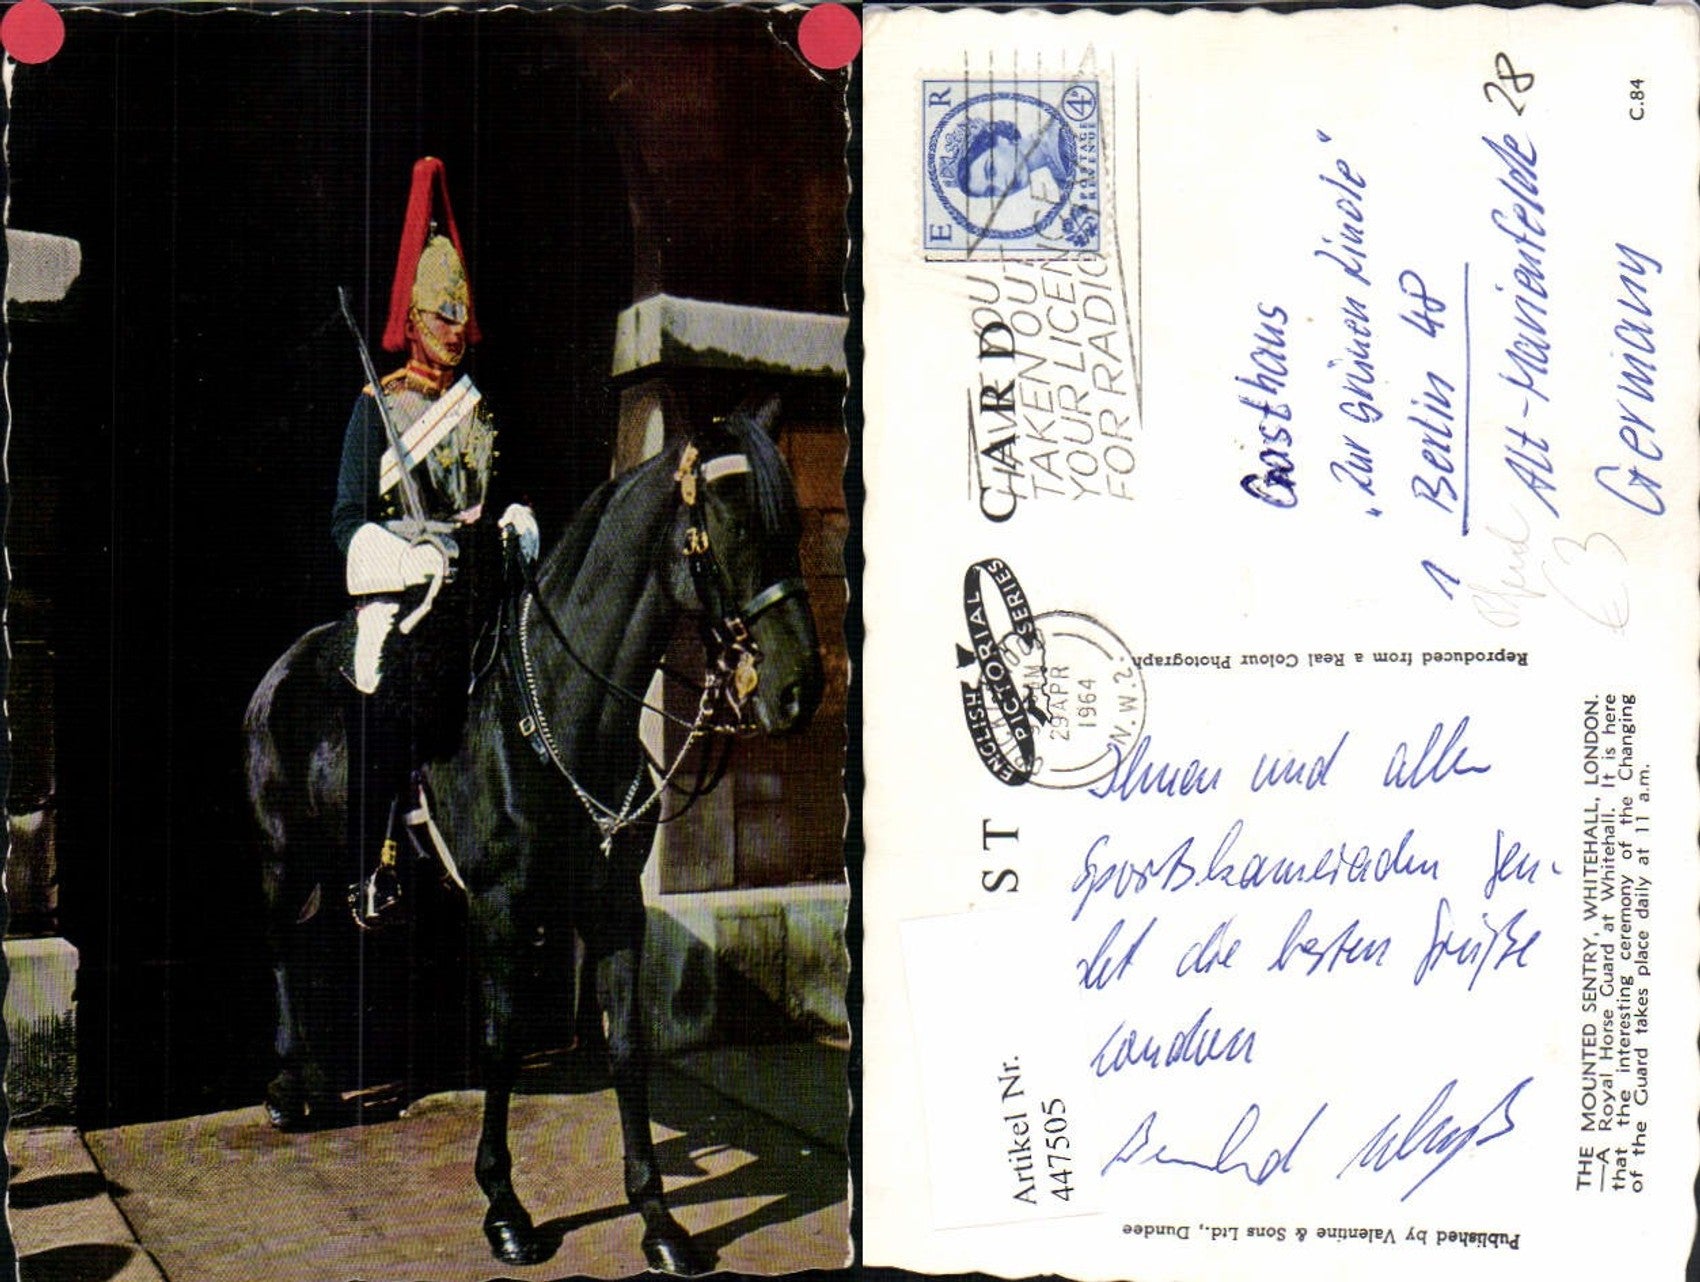 POST CARD
ENGLISH
PICTORIAL
SERIES
E R
4D
POSTAGE
REVENUE
HAVE YOU
TAKEN OUT
YOUR LICENCE
FOR RADIO
29 APR
1964
N.W.2.
Gasthaus
"Zur Grünen Linde"
1 Berlin 48
Alt-Marienfelde 28
Germany
€ 3
C.84
Reproduced from a Real Colour Photograph
Ihnen und allen
Sportskameraden sen-
det die besten Grüße
London
Bernhard
THE MOUNTED SENTRY, WHITEHALL, LONDON.
—A Royal Horse Guard at Whitehall. It is here
that the interesting ceremony of the Changing
of the Guard takes place daily at 11 a.m.
Artikel Nr.
447505
Published by Valentine & Sons Ltd., Dundee